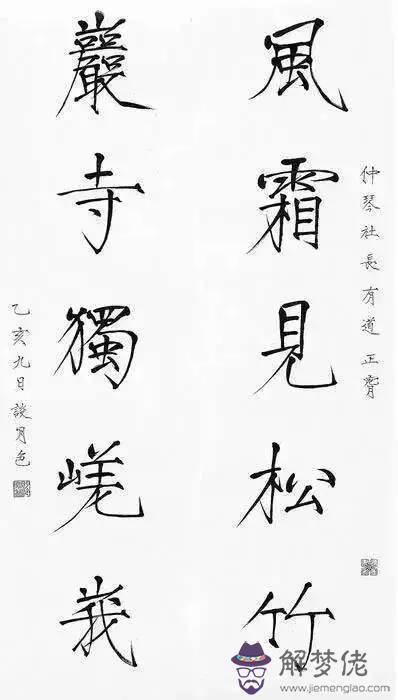 仲琴社長有道正
風霜見松竹
巖寺獨嵯峩
乙亥九日談月色
解梦佬
www.jiemenglao.com